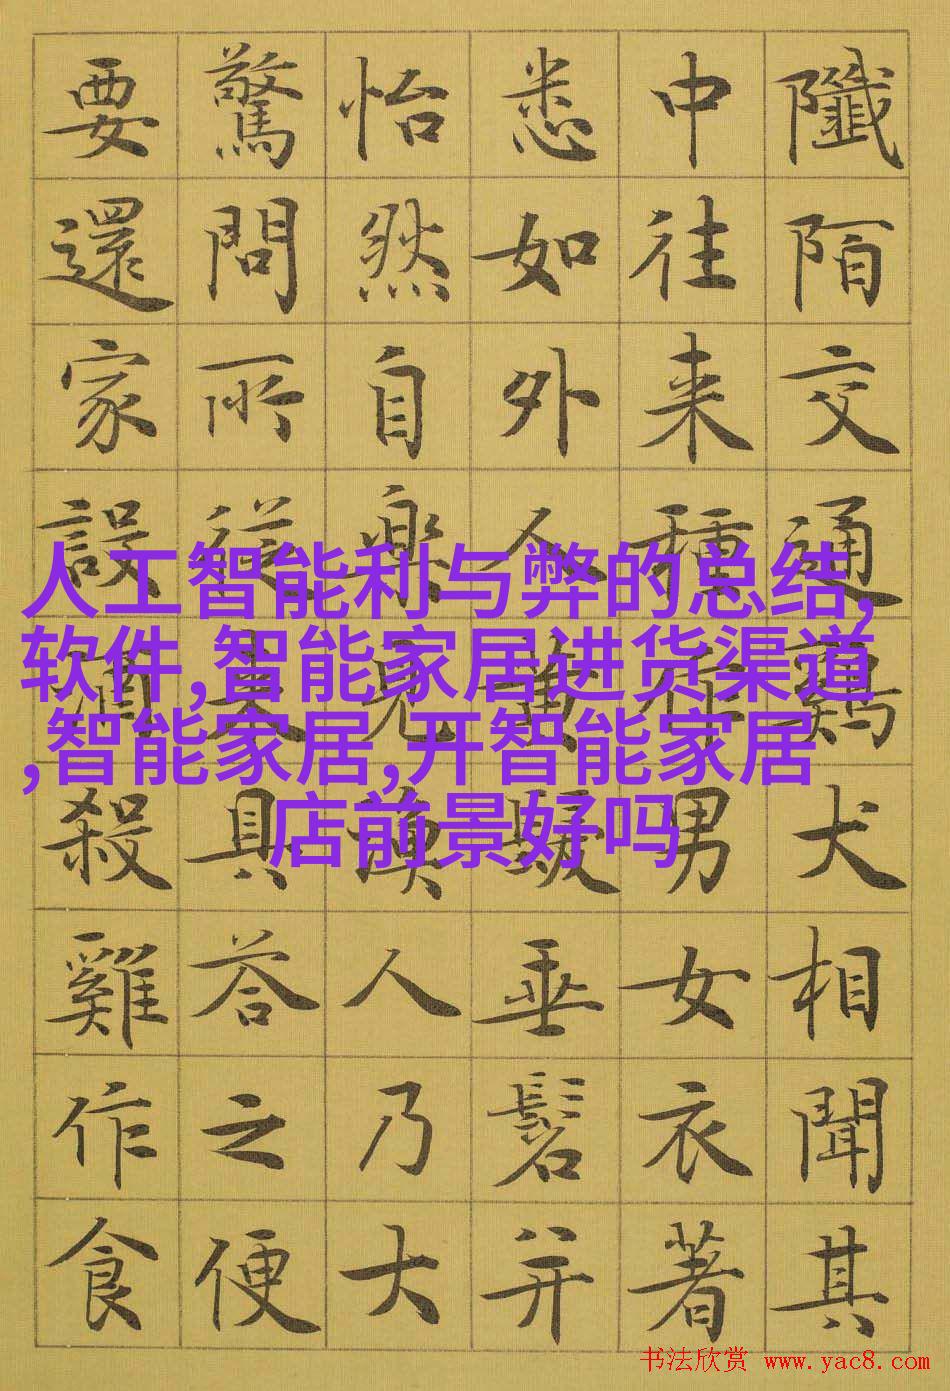 陌交通鷄犬相聞其
中往来種作男女衣著
悉如外人黄髮垂髫并
怡然自樂見漁人乃大
驚問所從来具荅之便
要還家設酒殺雞作食
人工智能利与弊的总结,
软件,智能家居进货渠道
,智能家居,开智能家居
店前景好吗
书法欣赏 www.yac8.com